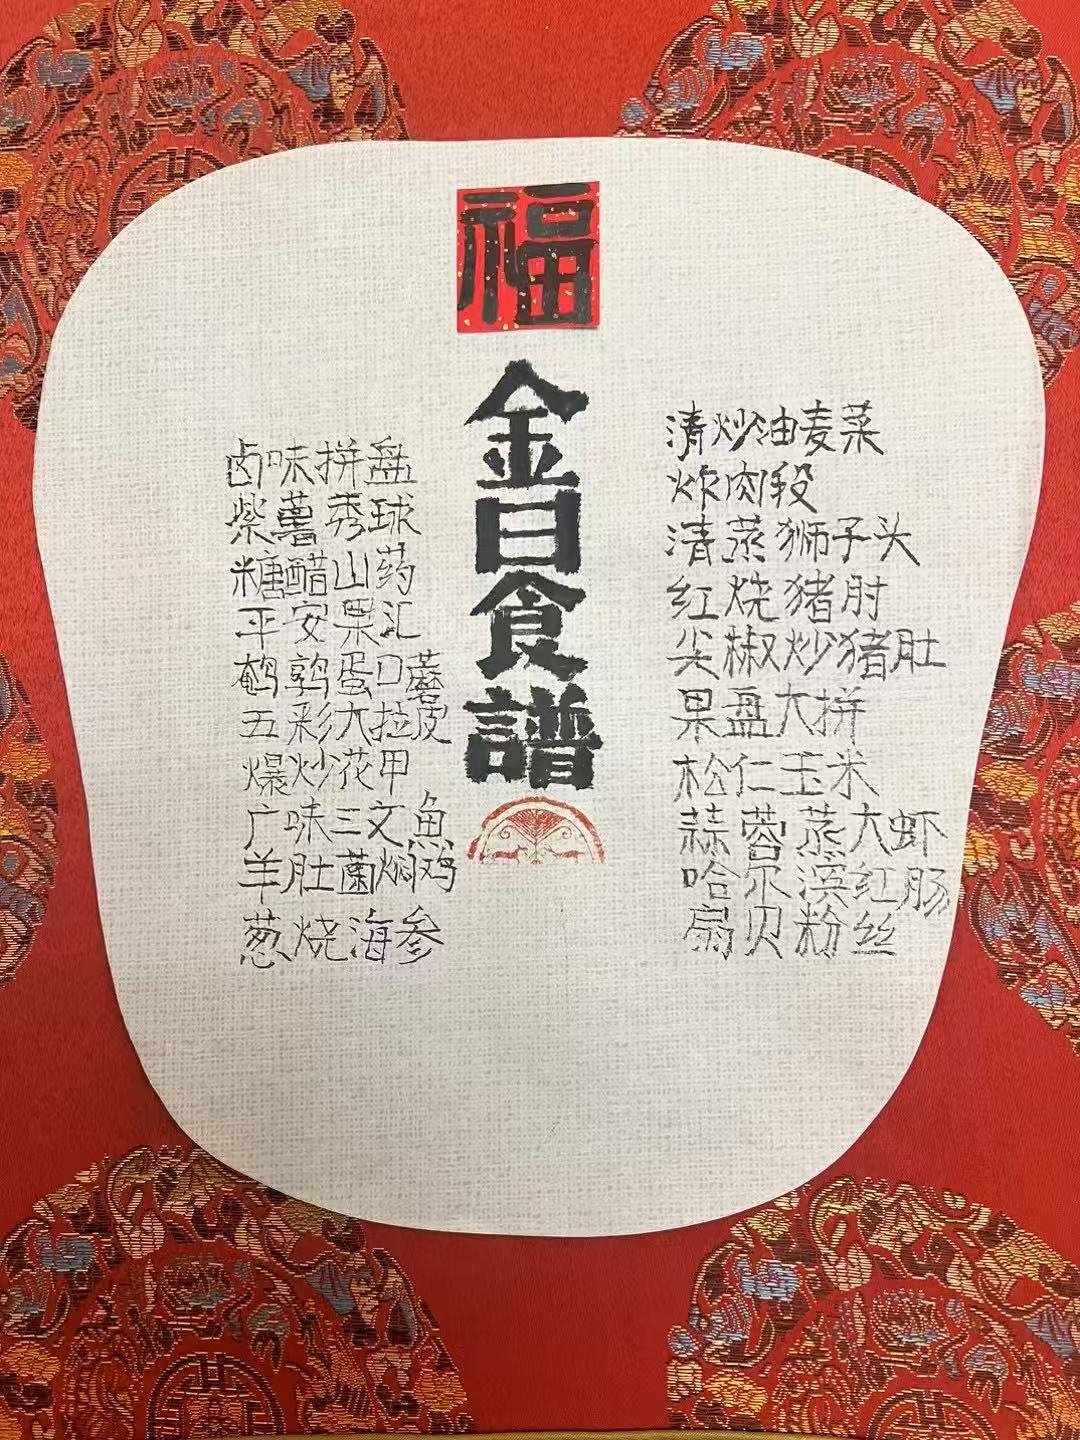 福
金日食譜
卤味拼盘
紫薯秀球
糖醋山药
平安果汇
鹌鹑蛋口蘑
五彩大拉皮
爆炒花甲
广味三文魚
羊肚菌焖鸡
葱烧海参
清炒油麦菜
炸肉段
清蒸狮子头
红烧猪肘
尖椒炒猪肚
果盘大拼
松仁玉米
蒜蓉蒸大虾
哈尔滨红肠
扇贝粉丝